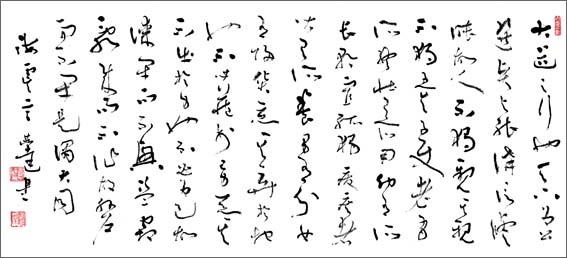 大道之行也天下為公
選賢與能講信修
睦故人不獨親其親
不獨子其子使老有
所終壯有所用幼有所
長矜寡孤獨廢疾者
皆有所養男有分女
有歸貨惡其棄於地
也不必藏於己力惡其
不出於身也不必為己故
謀閉而不興盜竊
亂賊而不作故外戶
而不閉是謂大同
海虞言恭達書